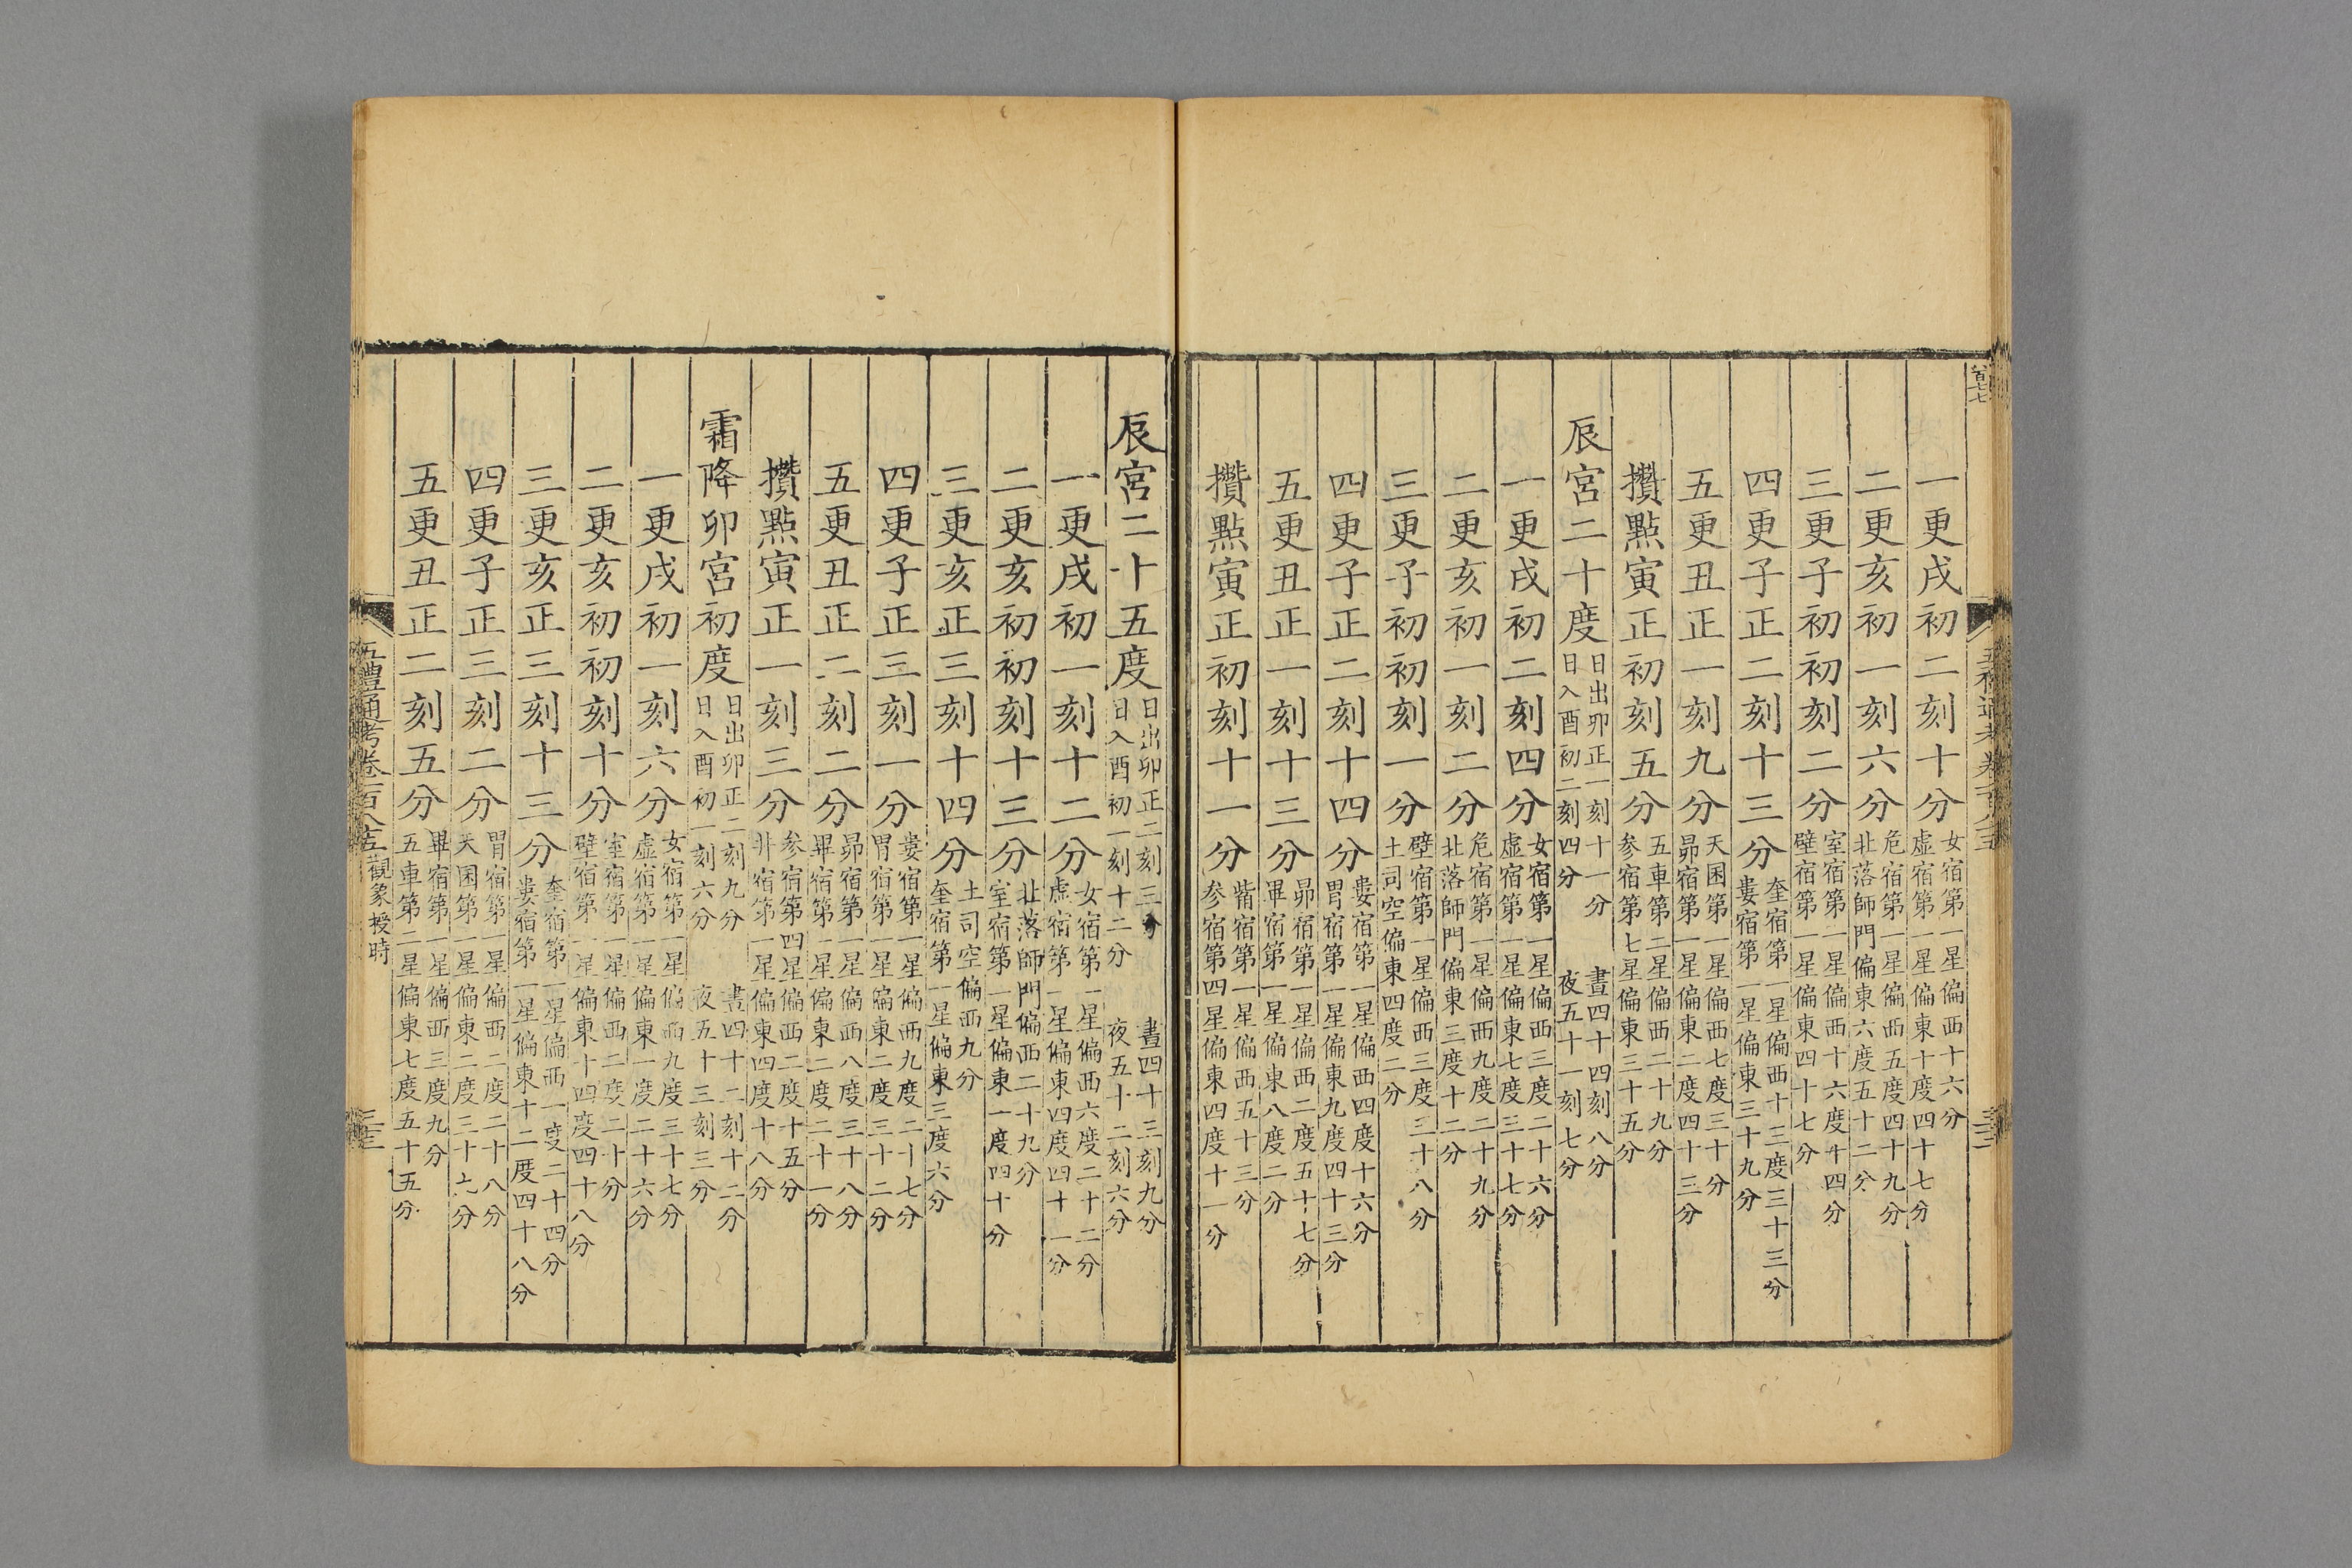 一更戌初二刻十分女宿第一星偏西十六分
虛宿第一星偏東十度四十七分
二更亥初一刻六分危宿第一星偏西五度四十九分
北落師門偏東六度五十二分
三更子初初刻二分室宿第一星偏西十六度十四分
壁宿第一星偏東四十七分
四更子正二刻十三分奎宿第一星偏西十二度三十三分
婁宿第一星偏東三十九分
五更丑正一刻九分天囷第一星偏西七度三十分
昴宿第一星偏東二度四十三分
攢點寅正初刻五分五車第二星偏西二十九分
参宿第七星偏東三十五分
辰宮二十度日出卯正一刻十一分 晝四十四刻八分
日入酉初二刻四分 夜五十一刻七分
一更戌初二刻四分女宿第一星偏西三度二十六分
虛宿第一星偏東七度三十七分
二更亥初一刻二分危宿第一星偏西九度二十九分
北落師門偏東三度十二分
三更子初初刻一分壁宿第一星偏西三度二十八分
土司空偏東四度二分
四更子正二刻十四分婁宿第一星偏西四度十六分
胃宿第一星偏東九度四十三分
五更丑正一刻十三分昴宿第一星偏西二度五十七分
畢宿第一星偏東八度二分
攢點寅正初刻十一分觜宿第一星偏西五十三分
参宿第四星偏東四度十一分
辰宮二十五度日出卯正二刻三分 晝四十三刻九分
日入酉初一刻十二分 夜五十二刻六分
一更戌初一刻十二分女宿第一星偏西六度二十二分
虛宿第一星偏東四度四十一分
二更亥初初刻十三分北落師門偏西二十九分
室宿第一星偏東一度四十分
三更亥正三刻十四分土司空偏西九分
奎宿第一星偏東三度六分
四更子正三刻一分婁宿第一星偏西九度二十七分
胃宿第一星偏東二度三十二分
五更丑正二刻二分昴宿第一星偏西八度三十八分
畢宿第一星偏東二度二十一分
攢點寅正一刻三分参宿第四星偏西二度十五分
井宿第一星偏東四度十八分
霜降卯宮初度日出卯正二刻九分 晝四十二刻十二分
日入酉初一刻六分 夜五十三刻三分
一更戌初一刻六分女宿第一星偏西九度三十七分
虛宿第一星偏東一度二十六分
二更亥初初刻十分室宿第一星偏西二度二十分
壁宿第一星偏東十四度四十八分
三更亥正三刻十三分奎宿第一星偏西一度二十四分
婁宿第一星偏東十二度四十八分
四更子正三刻二分胃宿第一星偏西二度二十八分
天囷第一星偏東二度三十六分
五更丑正二刻五分畢宿第一星偏西三度九分
五車第二星偏東七度五十五分
五禮通考卷一百八十五 觀象授時